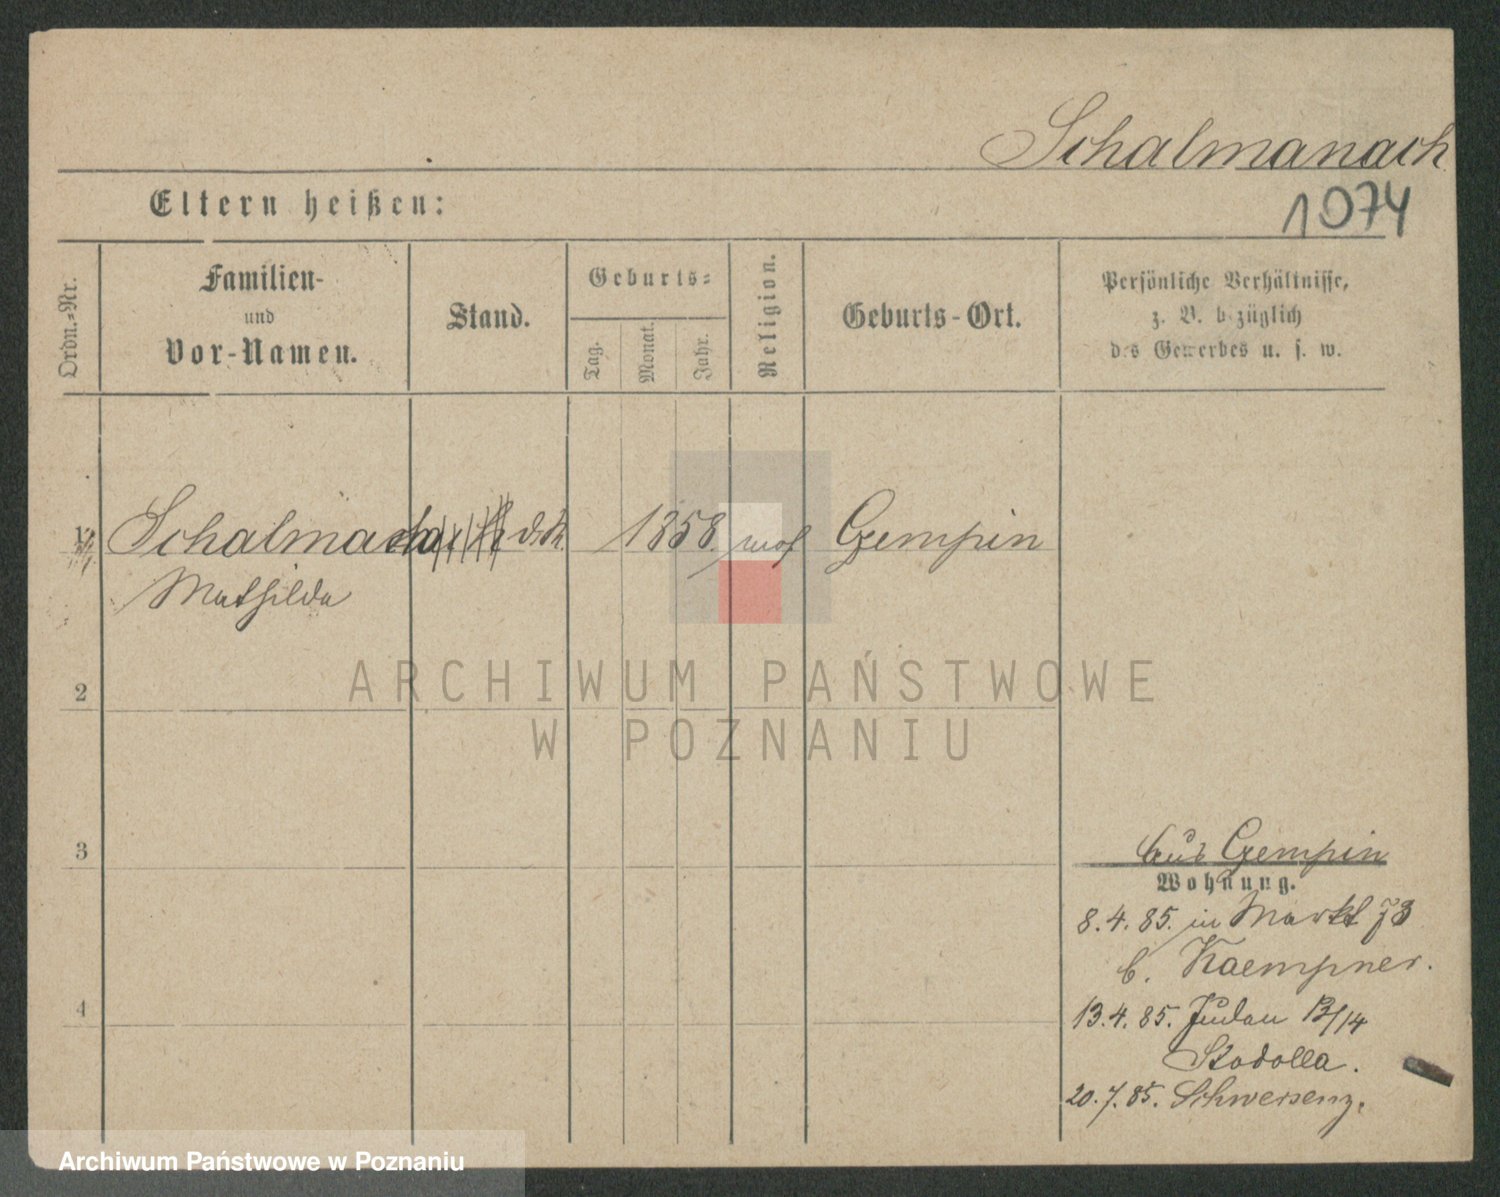 Schalmanach
1074
Eltern heißen:
Ordn.-Nr.
Familien-
und
Vor-Namen.
Stand.
Geburts-
Tag.
Monat.
Jahr.
Religion.
Geburts-Ort.
Persönliche Verhältnisse,
z. B. bezüglich
des Gewerbes u. s. w.
Schalmanach 1858. mos Gempin
Mathilda
2
3
4
aus Gempin
Wohnung.
8.4.85. in Markt 73
b. Kaempner.
13.4.85. Juden 13/14
Stodolla.
20.7.85. Schwersenz.
ARCHIWUM PAŃSTWOWE
W POZNANIU
Archiwum Państwowe w Poznaniu